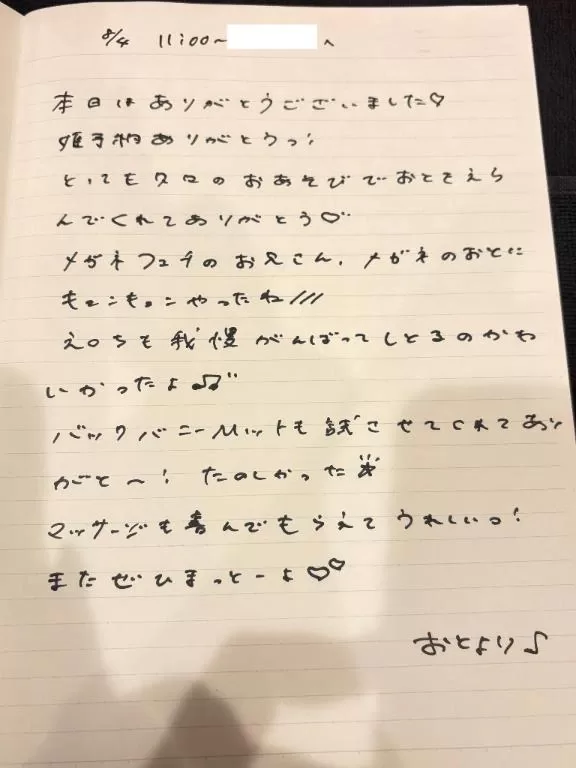 8/4 11:00〜 へ
本日はありがとうございました♡
姫予約ありがとうっ!
とってもタロのおあそびでおとさえら
んでくれてありがとう♡
メガネフェチのお兄さん、メガネのおとに
もェンもェンやったね///
えつちも我慢がんばってしとるのかわ
いかったよ♫
バックバニーMットも試させてくれてあり
がと〜! たのしかった
マッサージも喜んでもらえてうれしいっ!
またぜひまっとーよ♡♡
おとより♪